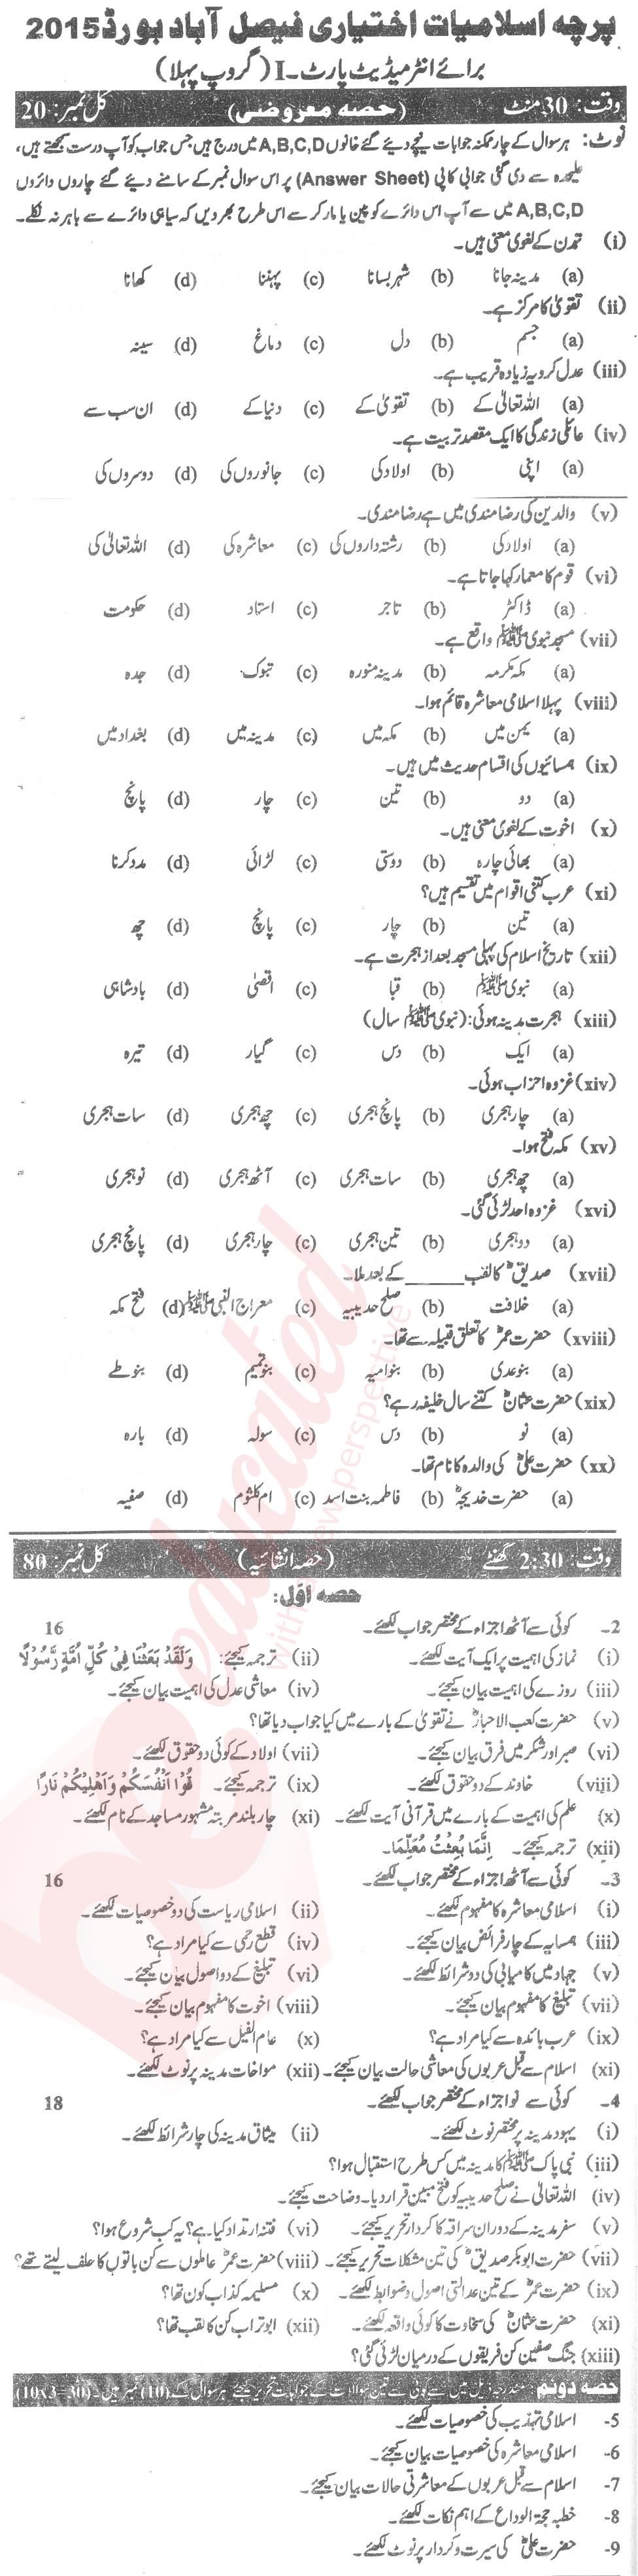 پرچہ اسلامیات اختیاری فیصل آباد بورڈ 2015
برائے انٹرمیڈیٹ پارٹ۔I (گروپ پہلا)
وقت: 30 منٹ (حصہ معروضی) کل نمبر: 20
نوٹ: ہر سوال کے چار ممکنہ جوابات نیچے دیئے گئے خانوں A,B,C,D میں درج ہیں جس جواب کو آپ درست سمجھتے ہیں،
علیحدہ سے دی گئی جوابی کاپی (Answer Sheet) پر اس سوال نمبر کے سامنے دیئے گئے چاروں دائروں
A,B,C,D میں سے آپ اس دائرے کو پین یا مارکر سے اس طرح بھر دیں کہ سیاہی دائرے سے باہر نہ نکلے۔
(i) تمدن کے لغوی معنی ہیں۔
(a) مدینہ جانا (b) شہر بسانا (c) پہننا (d) کھانا
(ii) تقویٰ کا مرکز ہے۔
(a) جسم (b) دل (c) دماغ (d) سینہ
(iii) عدل کرو یہ زیادہ قریب ہے۔
(a) اللہ تعالیٰ کے (b) تقویٰ کے (c) دنیا کے (d) ان سب سے
(iv) عائلی زندگی کا ایک مقصد تربیت ہے۔
(a) اپنی (b) اولاد کی (c) جانوروں کی (d) دوسروں کی
(v) والدین کی رضا مندی میں ہے رضا مندی۔
(a) اولاد کی (b) رشتہ داروں کی (c) معاشرہ کی (d) اللہ تعالیٰ کی
(vi) قوم کا معمار کہا جاتا ہے۔
(a) ڈاکٹر (b) تاجر (c) استاد (d) حکومت
(vii) مسجد نبوی ﷺ واقع ہے۔
(a) مکہ مکرمہ (b) مدینہ منورہ (c) تبوک (d) جدہ
(viii) پہلا اسلامی معاشرہ قائم ہوا۔
(a) یمن میں (b) مکہ میں (c) مدینہ میں (d) بغداد میں
(ix) ہمسائیوں کی اقسام حدیث میں ہیں۔
(a) دو (b) تین (c) چار (d) پانچ
(x) اخوت کے لغوی معنی ہیں۔
(a) بھائی چارہ (b) دوستی (c) لڑائی (d) مدد کرنا
(xi) عرب کتنی اقوام میں تقسیم ہیں؟
(a) تین (b) چار (c) پانچ (d) چھ
(xii) تاریخ اسلام کی پہلی مسجد بعد از ہجرت ہے۔
(a) نبوی ﷺ (b) قبا (c) اقصیٰ (d) بادشاہی
(xiii) ہجرت مدینہ ہوئی: (نبوی ﷺ سال)
(a) ایک (b) دس (c) گیار (d) تیرہ
(xiv) غزوہ احزاب ہوئی۔
(a) چار ہجری (b) پانچ ہجری (c) چھ ہجری (d) سات ہجری
(xv) مکہ فتح ہوا۔
(a) چھ ہجری (b) سات ہجری (c) آٹھ ہجری (d) نو ہجری
(xvi) غزوہ احد لڑائی گئی۔
(a) دو ہجری (b) تین ہجری (c) چار ہجری (d) پانچ ہجری
(xvii) صدیقؓ کا لقب ______ کے بعد ملا۔
(a) خلافت (b) صلح حدیبیہ (c) معراج النبی ﷺ (d) فتح مکہ
(xviii) حضرت عمرؓ کا تعلق قبیلہ سے تھا۔
(a) بنو عدی (b) بنو امیہ (c) بنو تمیم (d) بنو طے
(xix) حضرت عثمانؓ کتنے سال خلیفہ رہے؟
(a) نو (b) دس (c) سولہ (d) بارہ
(xx) حضرت علیؓ کی والدہ کا نام تھا۔
(a) حضرت خدیجہؓ (b) فاطمہ بنت اسد (c) ام کلثوم (d) صفیہ
وقت: 2:30 گھنٹے (حصہ انشائیہ) کل نمبر: 80
حصہ اوّل:
2- کوئی سے آٹھ اجزاء کے مختصر جواب لکھئے۔ 16
(i) نماز کی اہمیت پر ایک آیت لکھئے۔ (ii) ترجمہ کیجئے: وَلَقَدْ بَعَثْنَا فِیْ کُلِّ اُمَّةٍ رَّسُوْلًا
(iii) روزے کی اہمیت بیان کیجئے۔ (iv) معاشی عدل کی اہمیت بیان کیجئے۔
(v) حضرت کعب الاحبارؓ نے تقویٰ کے بارے میں کیا جواب دیا تھا؟
(vi) صبر اور شکر میں فرق بیان کیجئے۔ (vii) اولاد کے کوئی دو حقوق لکھئے۔
(viii) خاوند کے دو حقوق لکھئے۔ (ix) ترجمہ کیجئے۔ قُوْا اَنْفُسَکُمْ وَاَهْلِیْکُمْ نَارًا
(x) علم کی اہمیت کے بارے میں قرآنی آیت لکھئے۔ (xi) چار بلند مرتبہ مشہور مساجد کے نام لکھئے۔
(xii) ترجمہ کیجئے۔ اِنَّمَا بُعِثْتُ مُعَلِّمًا۔
3- کوئی سے آٹھ اجزاء کے مختصر جواب لکھئے۔ 16
(i) اسلامی معاشرہ کا مفہوم لکھئے۔ (ii) اسلامی ریاست کی دو خصوصیات لکھئے۔
(iii) ہمسایہ کے چار فرائض بیان کیجئے۔ (iv) قطع رحمی سے کیا مراد ہے؟
(v) جہاد میں کامیابی کی دو شرائط لکھئے۔ (vi) تبلیغ کے دو اصول بیان کیجئے۔
(vii) تبلیغ کا مفہوم بیان کیجئے۔ (viii) اخوت کا مفہوم بیان کیجئے۔
(ix) عرب بائدہ سے کیا مراد ہے؟ (x) عام الفیل سے کیا مراد ہے؟
(xi) اسلام سے قبل عربوں کی معاشی حالت بیان کیجئے۔ (xii) مواخات مدینہ پر نوٹ لکھئے۔
4- کوئی سے نو اجزاء کے مختصر جواب لکھئے۔ 18
(i) یہود مدینہ پر مختصر نوٹ لکھئے۔ (ii) میثاق مدینہ کی چار شرائط لکھئے۔
(iii) نبی پاک ﷺ کا مدینہ میں کس طرح استقبال ہوا؟
(iv) اللہ تعالیٰ نے صلح حدیبیہ کو فتح مبین قرار دیا۔ وضاحت کیجئے۔
(v) سفر مدینہ کے دوران سراقہ کا کردار تحریر کیجئے۔ (vi) فتنہ ارتداد کیا ہے؟ یہ کب شروع ہوا؟
(vii) حضرت ابوبکر صدیقؓ کی تین مشکلات تحریر کیجئے۔ (viii) حضرت عمرؓ عاملوں سے کن باتوں کا حلف لیتے تھے؟
(ix) حضرت عمرؓ کے تین عدالتی اصول و ضوابط لکھئے۔ (x) مسلیمہ کذاب کون تھا؟
(xi) حضرت عثمانؓ کی سخاوت کا کوئی واقعہ لکھئے۔ (xii) ابوتراب کن کا لقب تھا؟
(xiii) جنگ صفین کن فریقوں کے درمیان لڑائی گئی؟
حصہ دوئم: مندرجہ ذیل میں سے کوئی سے تین سوالات کے جوابات تحریر کیجئے ہر سوال کے (10) نمبر ہیں۔ (10x3=30)
5- اسلامی تہذیب کی خصوصیات لکھئے۔
6- اسلامی معاشرہ کی خصوصیات بیان کیجئے۔
7- اسلام سے قبل عربوں کے معاشرتی حالات بیان کیجئے۔
8- خطبہ حجۃ الوداع کے اہم نکات لکھئے۔
9- حضرت علیؓ کی سیرت و کردار پر نوٹ لکھئے۔
beeducated
with a new perspective